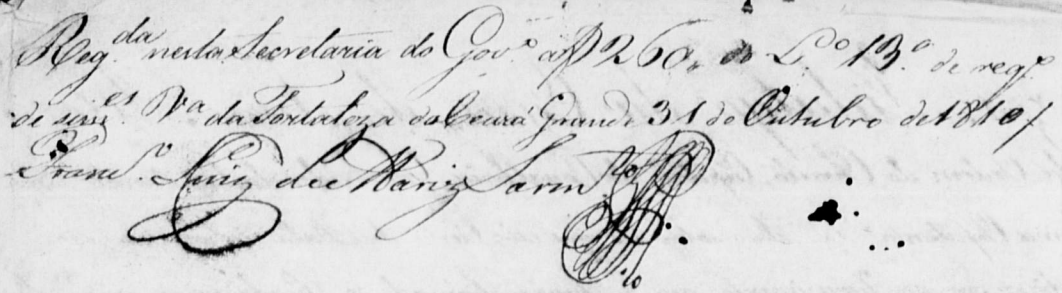 Reg.da nesta Secretaria do Gov.o a f 260, do L.o 13.o de reg.o
de sesm.es V.a da Fortaleza do Ceará Grande 31 de Outubro de 1810/
Fran.co Luiz de Mariz Sarm.to